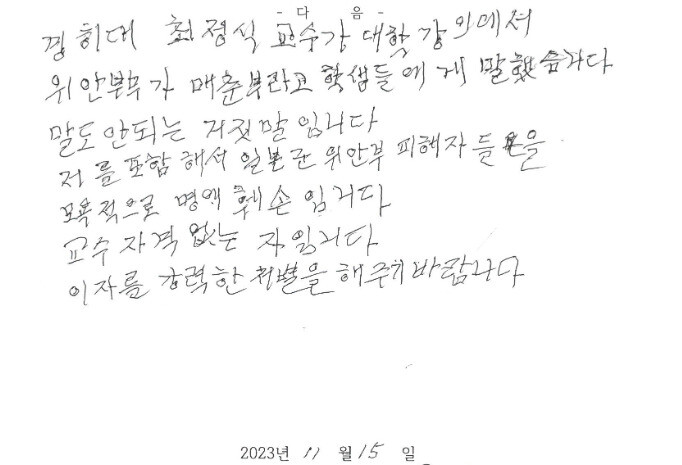 - 다 음 -
경희대 최정식 교수가 대학 강의에서
위안부가 매춘부라고 학생들에게 말했습니다
말도 안되는 거짓말입니다
저를 포함해서 일본군 위안부 피해자들을
모욕적으로 명예훼손 입니다
교수 자격 없는 자입니다
이자를 강력한 처벌을 해주기 바랍니다
2023년 11 월 15 일